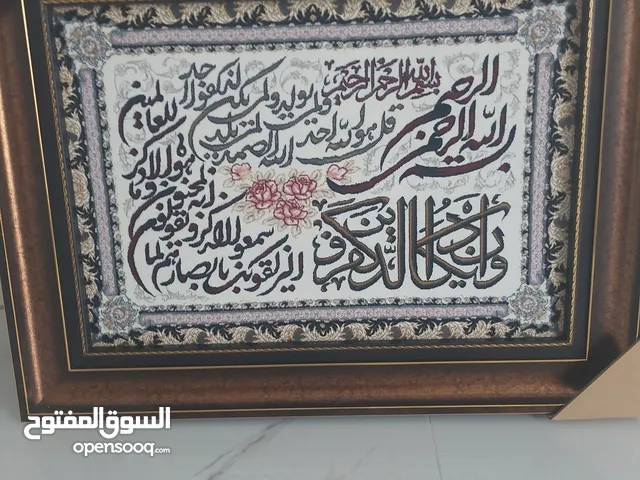 بسم الله الرحمن الرحيم
بسم الله الرحمن الرحيم
قل هو الله احد الله الصمد لم يلد
ولم يولد ولم يكن له كفوا احد
وان يكاد الذين كفروا
ليزلقونك بابصارهم لما
سمعوا الذكر ويقولون
انه لمجنون وما
هو الا ذكر
للعالمين
السوق المفتوح
opensooq.com